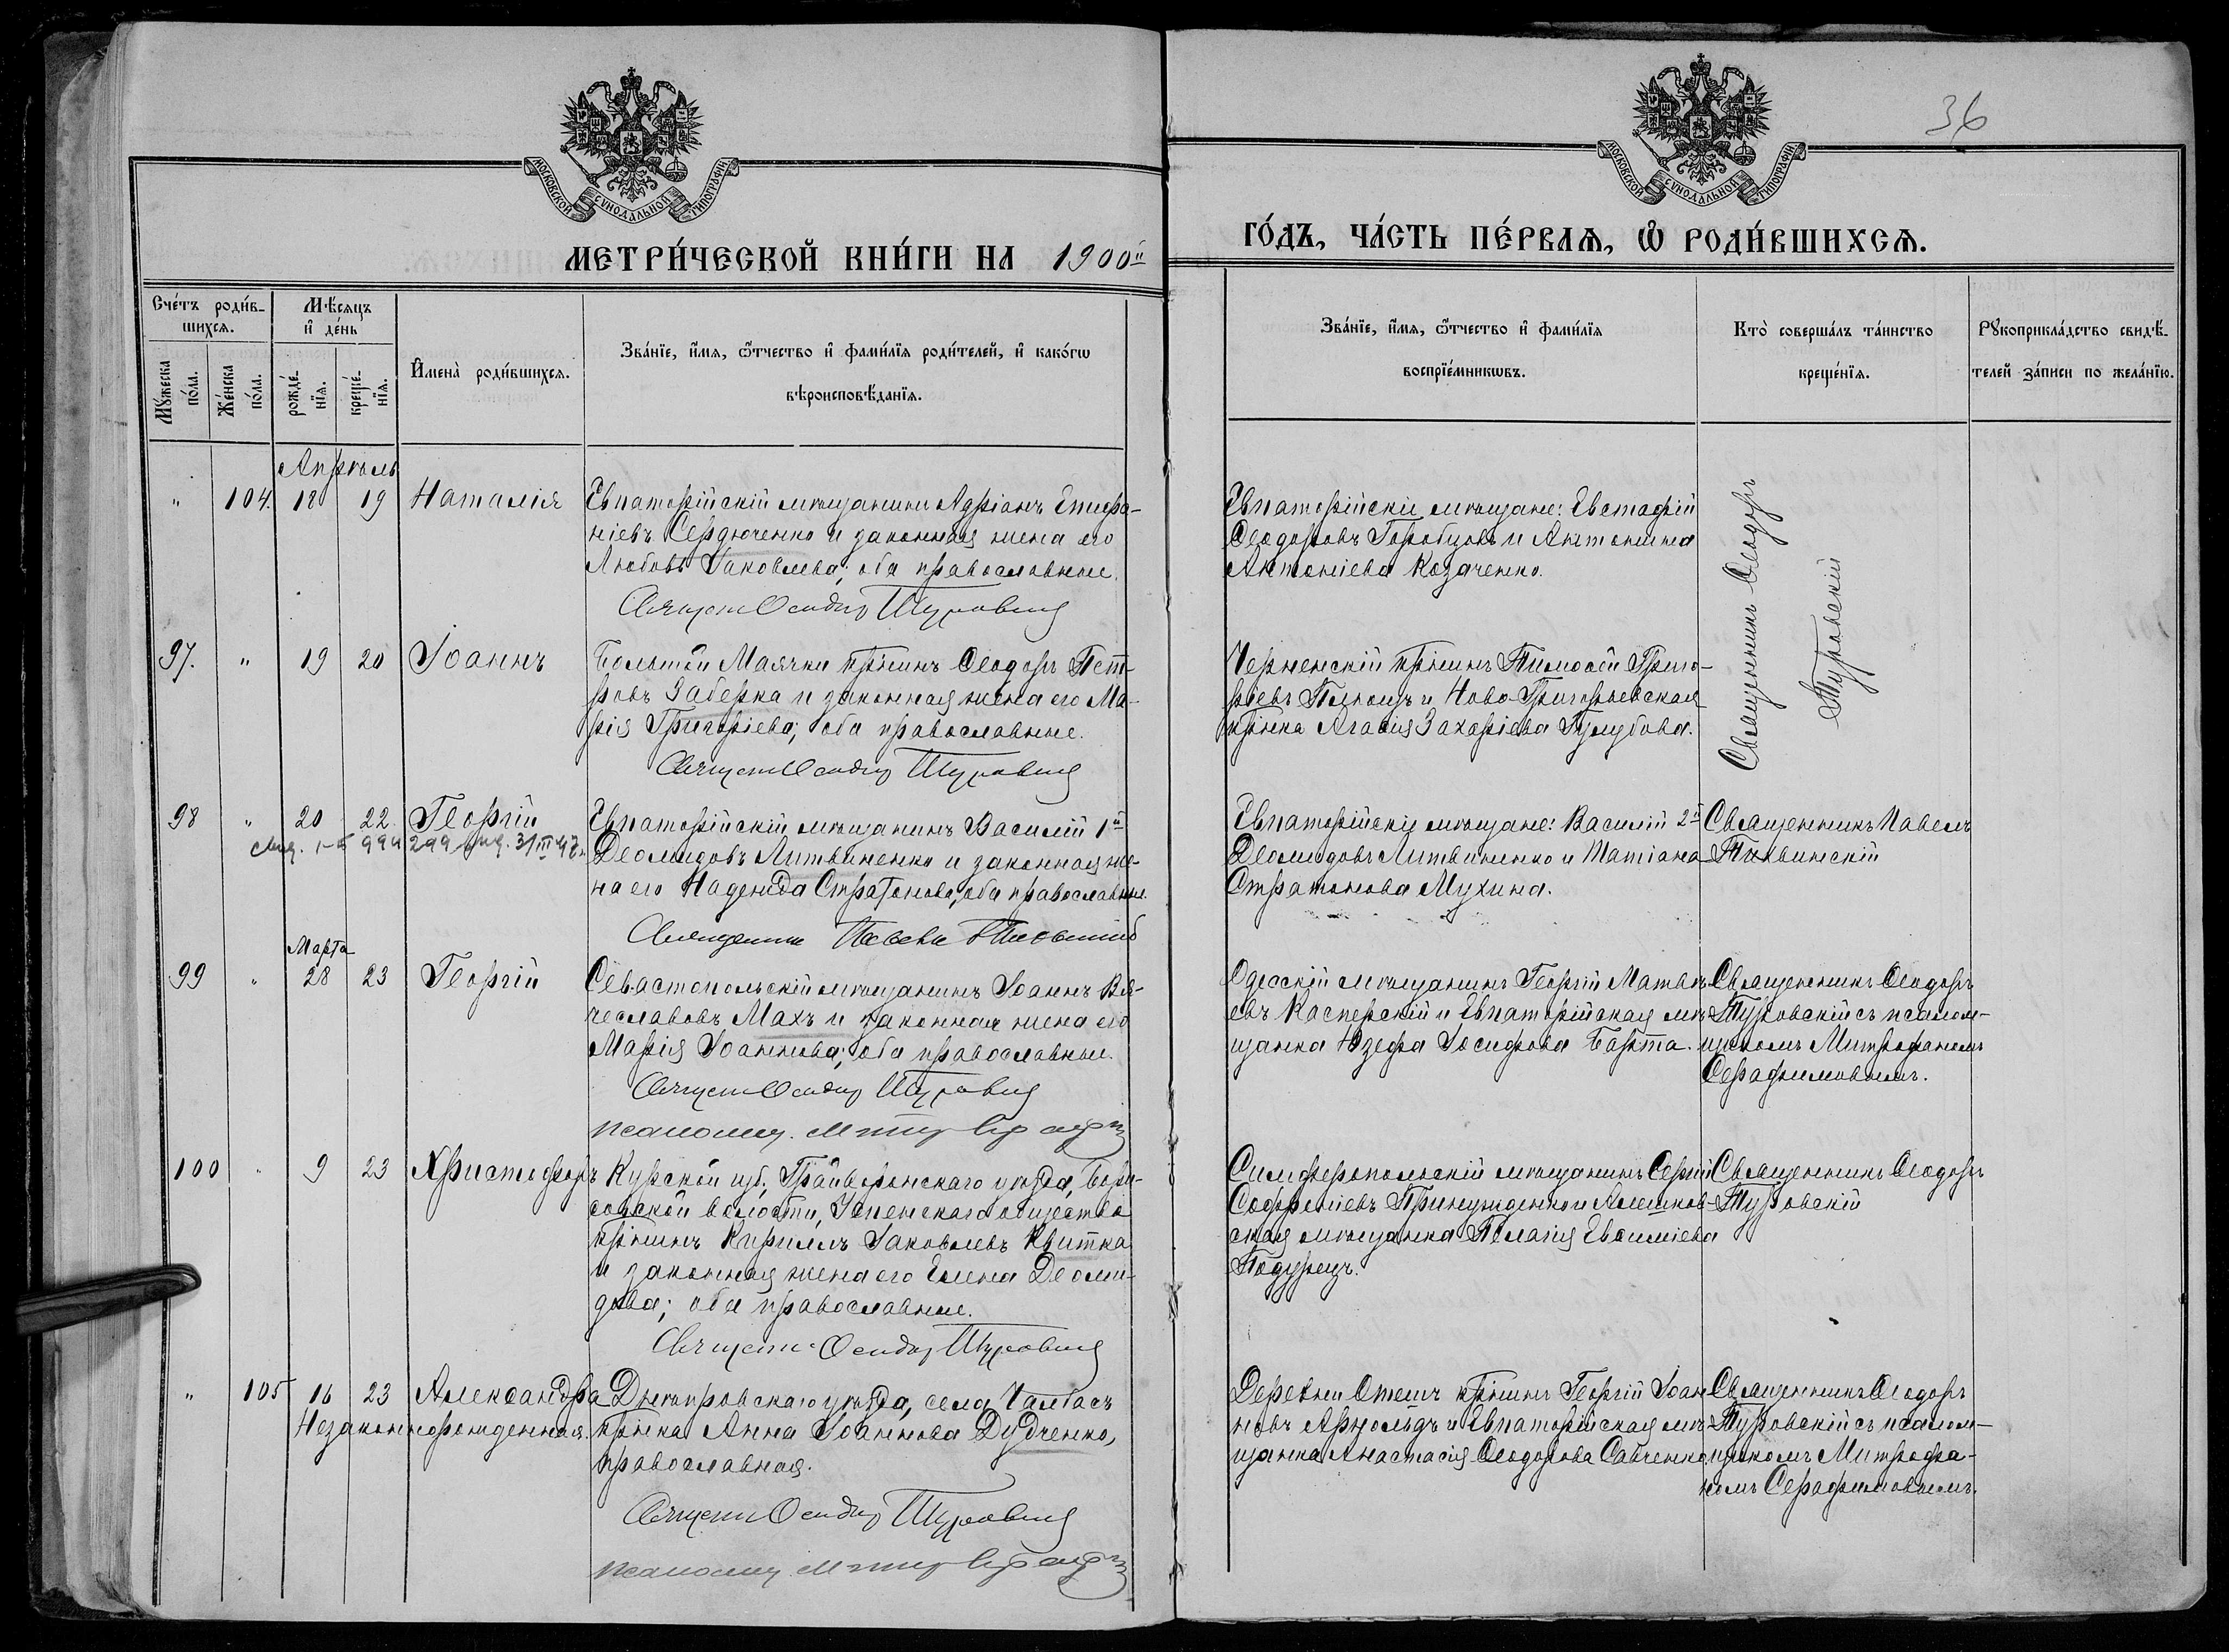 36
МОСКОВСКОЙ СУНОДАЛЬНОЙ ТИПОГРАФІИ
МОСКОВСКОЙ СУНОДАЛЬНОЙ ТИПОГРАФІИ
МЕТРИ́ЧЕСКОЙ КНИ́ГИ НА 1900й
ГО́ДЪ, ЧА́СТЬ ПЕ́РВАѦ, Ѡ҆ РОДИ́ВШИХСѦ.
Сче́тъ роди́в-
шихсѧ.
Мꙋ́жеска
по́ла.
Же́нска
по́ла.
Мѣ́сѧцъ
и҆ де́нь
рожде́-
нїѧ.
креще́-
нїѧ.
И҆мена̀ роди́вшихсѧ.
Зва́нїе, и҆́мѧ, ѻ҆́тчество и҆ фами́лїѧ роди́телей, и҆ како́гѡ
вѣроисповѣ́данїѧ.
Зва́нїе, и҆́мѧ, ѻ҆́тчество и҆ фами́лїѧ
воспрїе́мникѡвъ.
Кто̀ соверша́лъ та́инство
креще́нїѧ.
Рꙋкоприкла́дство свидѣ́-
телей за́писи по жела́нїю.
Апрѣль
" 104. 18 19 Наталія
Евпаторійскій мѣщанинъ Адріанъ Епифа-
ніевъ Сердюченко и законная жена его
Любовь Іаковлева; оба православные.
Священ. Ѳеодоръ Туровскій
Евпаторійскіе мѣщане: Евстафій
Ѳеодоровъ Горобцовъ и Антонина
Антоніева Козаченко.
Священникъ Ѳеодоръ
Туровскій
97. " 19 20 Іоаннъ
Большой Маячки крнинъ Ѳеодоръ Пет-
ровъ Заберка и законная жена его Ма-
рія Григоріева; оба православные.
Священ. Ѳеодоръ Туровскій
Черненскій крнинъ Тимоѳей Григо-
ріевъ и Ново-Григорьевская
крнка Агаѳія Захаріева
98 " 20 22 Георгій
299 31/III 47.
Евпаторійскій мѣщанинъ Василій 1й
Деомидовъ Литвиненко и законная же-
на его Надежда Стратонова; оба православные.
Священникъ Павелъ Тихвинскій
Евпаторійскіе мѣщане: Василій 2й
Деомидовъ Литвиненко и Татіана
Стратонова Мухина.
Священникъ Павелъ
Тихвинскій
Марта
99 " 28 23 Георгій
Севастопольскій мѣщанинъ Іоаннъ Вя-
чеславовъ Махъ и законная жена его
Марія Іоаннова; оба православные.
Священ. Ѳеодоръ Туровскій
псаломщ. Митр Сераф
Одесскій мѣщанинъ Георгій Матвѣ-
евъ Касперскій и Евпаторійская мѣ-
щанка Юзефа Іосифова Барта.
Священникъ Ѳеодоръ
Туровскій съ псалом-
щикомъ Митрофаномъ
Серафимовымъ.
100 " 9 23 Христофоръ
Курской губ., Грайворонскаго уѣзда, Бори-
совской волости, Успенскаго общества
крнинъ Кириллъ Іаковлевъ Квитка
и законная жена его Елена Деоми-
дова; оба православные.
Священ. Ѳеодоръ Туровскій
Симферопольскій мѣщанинъ Сергій
Софроніевъ Принужденко и Алешков-
ская мѣщанка Пелагія Евѳиміева
Подурецъ.
Священникъ Ѳеодоръ
Туровскій
" 105 16 23 Александра
Незаконнорожденная.
Днѣпровскаго уѣзда, села Чалбасъ
крнка Анна Іоаннова Дудченко,
православная.
Священ. Ѳеодоръ Туровскій
псаломщ. Митр Сераф
Деревни Отешъ крнинъ Георгій Іоан-
новъ Арнольдъ и Евпаторійская мѣ-
щанка Анастасія Ѳеодорова Савченко.
Священникъ Ѳеодоръ
Туровскій съ псалом-
щикомъ Митрофа-
номъ Серафимовымъ.